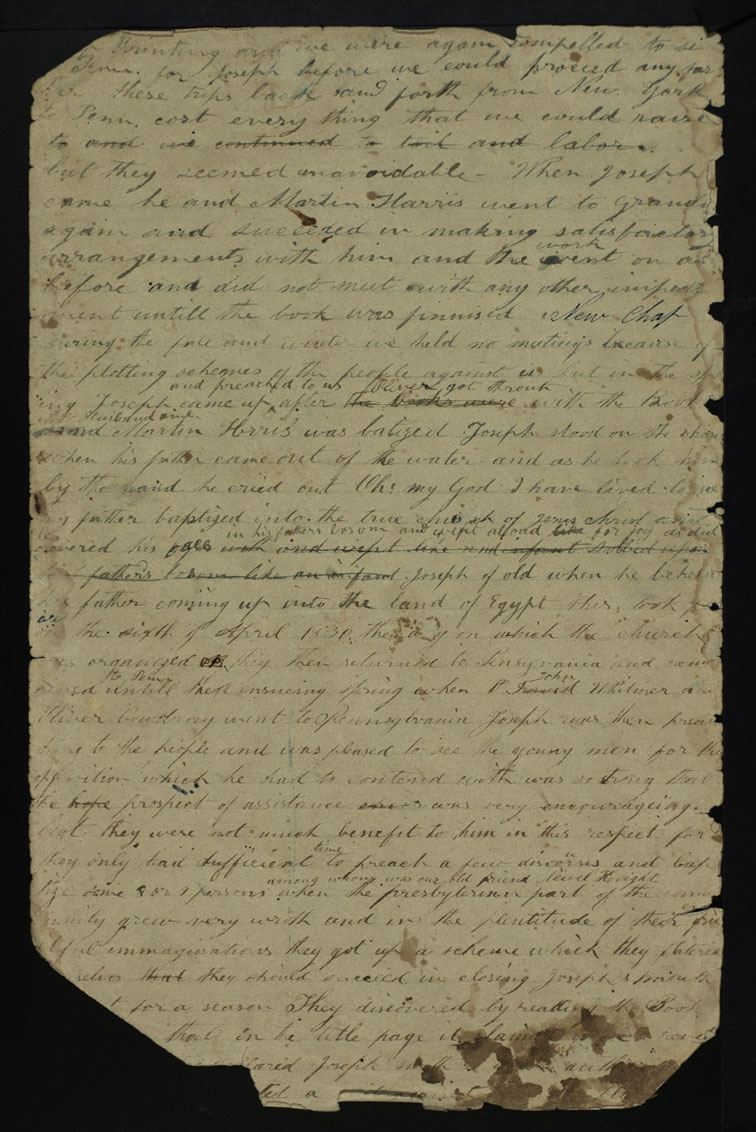 Printing and we were again compelled to se
Penn. for Joseph before we could proceed any far
these trips back and forth from New York
to Penn. cost everything that we could raise
to and we continued to toil and labor.
but they seemed unavoidable - When Joseph
came he and Martin Harris went to Grandi
again and succeeded in making satisfactory
arrangements with him and the work
went on as
before and did not meet with any other imped
ment untill the book was finnised New Chap
during the fall and winter we held no meetings because of
the plotting schemes of the people against us but in the sp
and preached to us Oliver got throuh
ing Joseph came up after the books were with the Book
my Husband and
and Martin Hrris was batized Joseph stood on the shore
when his father came out of the water and as he took him
by the hand he cried out Oh! my God I have lived to see
my father baptized into the true church of Jesus Christ and
in his fathers bosom and wept aloud like for joy as did
covered his face with and wept like and infant sobied upon
his fathers bosom like an infant Joseph of old when he beheld
his father coming up into the land of Egypt this took
on the sixth of April 1830 the day on which the church
was organized they then returned to Pensyvania and
to Penn John
untill the ensueing spring when P David Whitmer an
Oliver Cowdray went to Pennsylvania Joseph was then preac
hing to the people and was pleased to see the young men for the
opposition which he had to contend with was so strong that
the hope prospect of assistance was very encourageing
but they were not much benefit to him in this respect for
time
they only had sufficient to preach a few discorses and bap
among whom was our old friend Newel Knight
tize some persons when the presbyterian part of the com
unity grew very wroth and in the plentitude of their
immaginations they got up a scheme which they flatered
selves that they should succeed in closing Josephs mouth
for a season They discovered by reading the Book
that in the title page it claim
Joseph